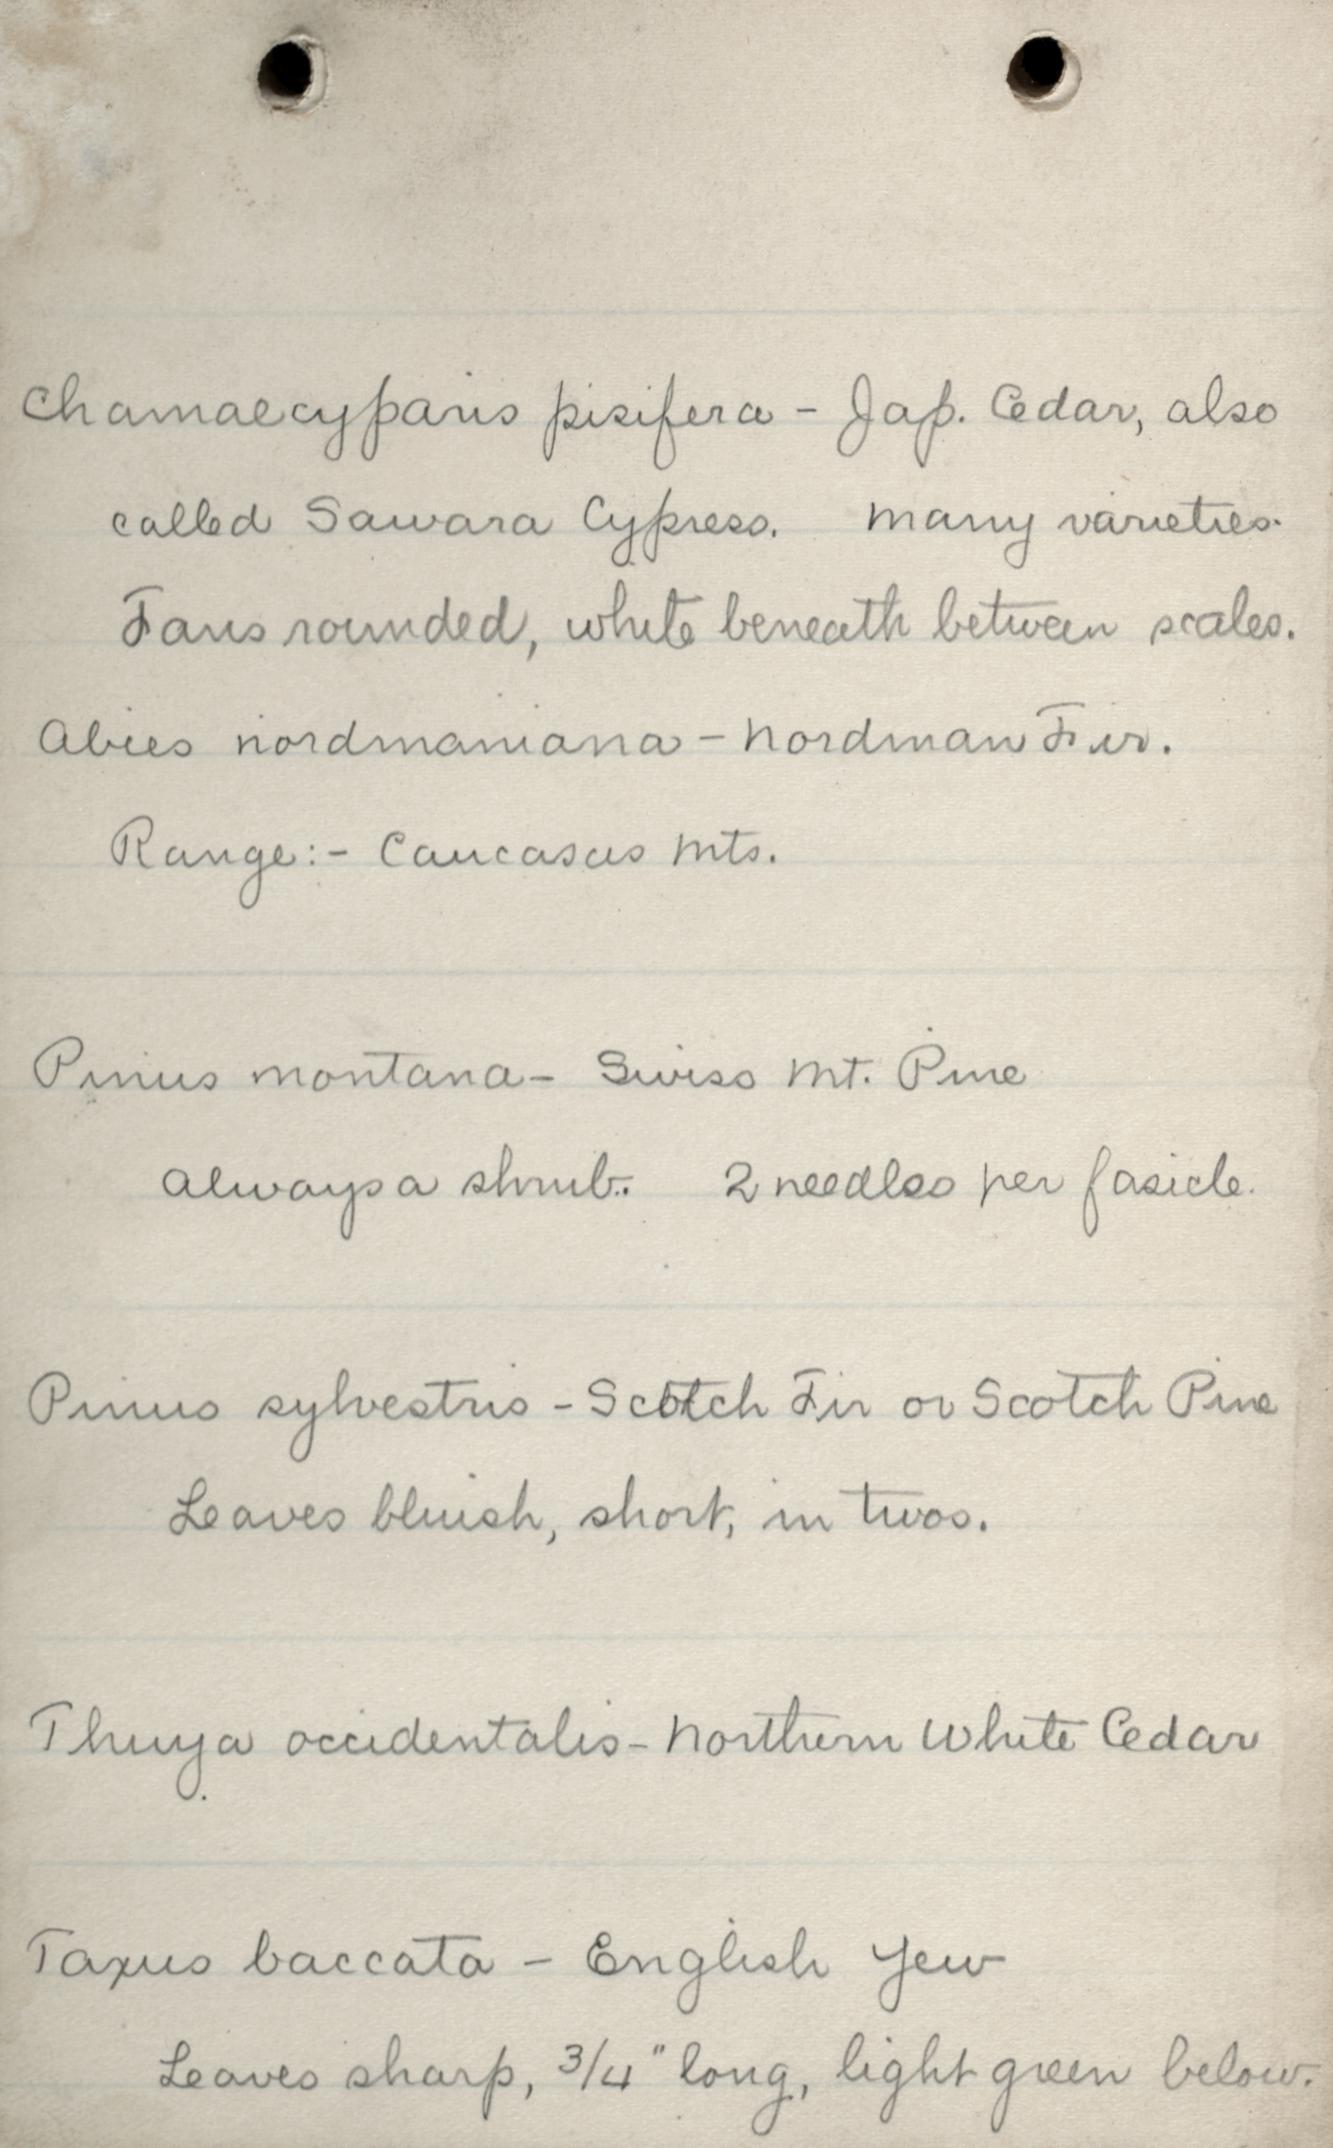 Chamaecyparis pisifera - Jap. Cedar, also
called Sawara Cypress. Many varieties.
Fans rounded, white beneath between scales.
Abies nordmaniana - Nordman Fir.
Range:- Caucasus Mts.
Pinus montana - Swiss Mt. Pine
Always a shrub. 2 needles per fasicle.
Pinus sylvestris - Scotch Fir or Scotch Pine
Leaves bluish, short, in twos.
Thuya occidentalis - Northern White Cedar
Taxus baccata - English Yew
Leaves sharp, 3/4" long, light green below.